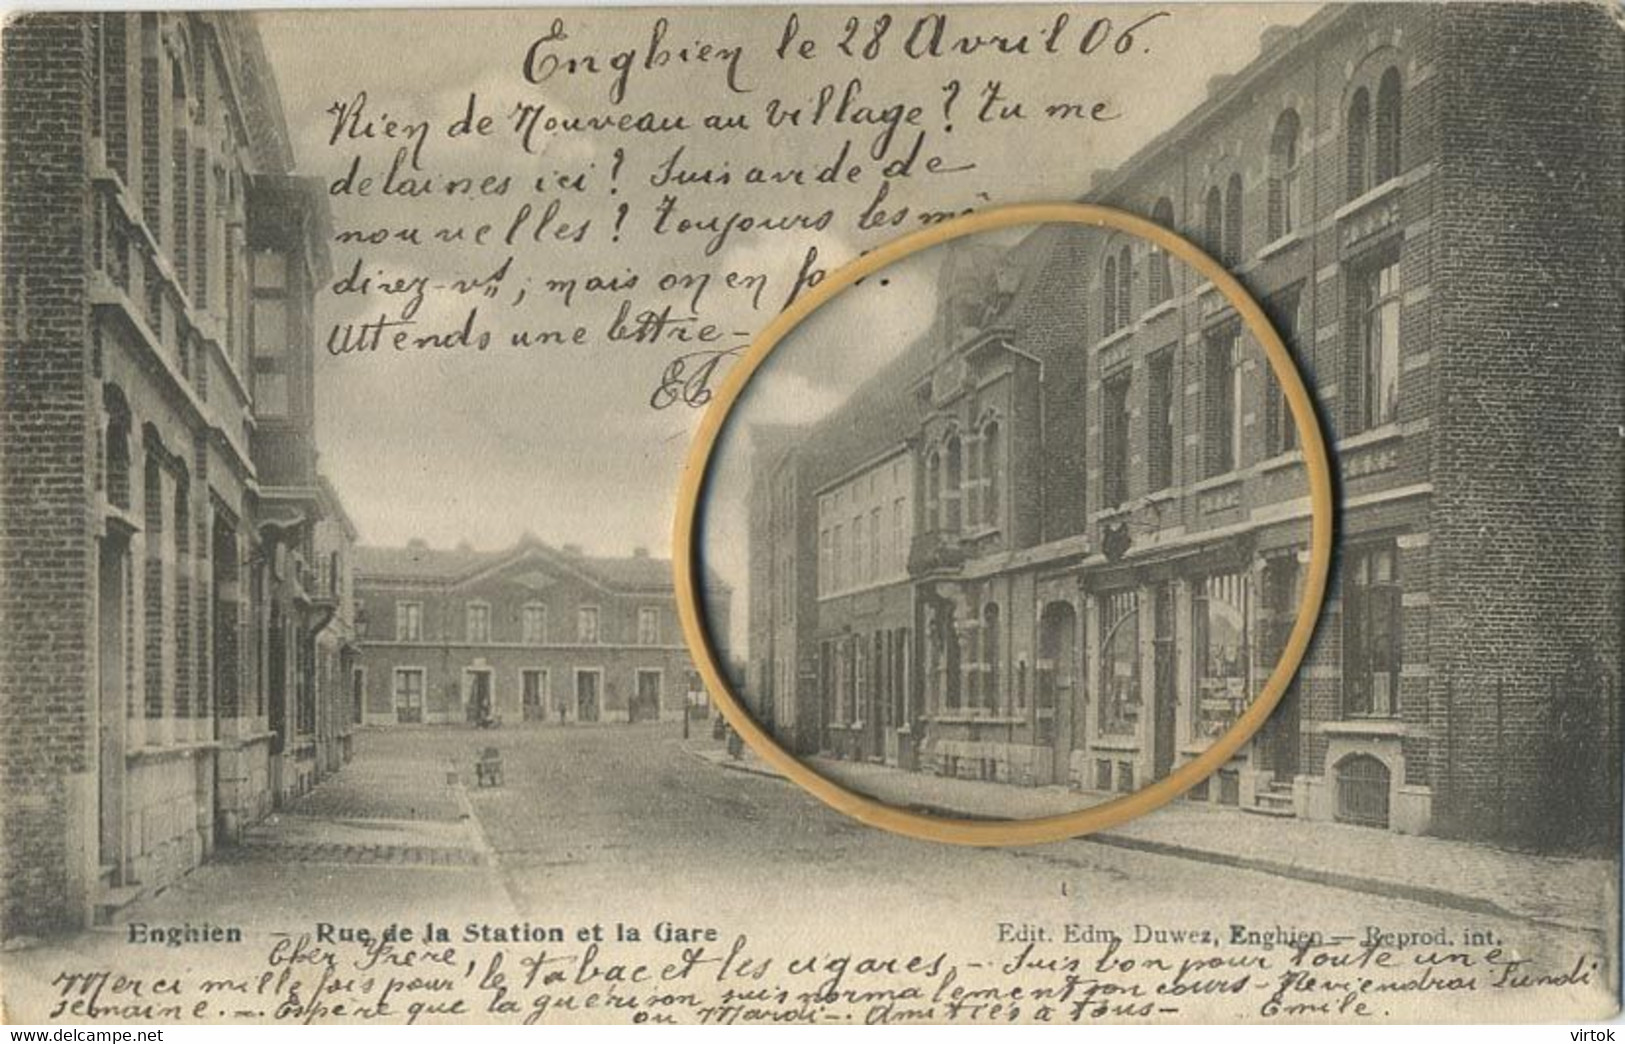 Enghien le 28 Avril 06.
Rien de Nouveau au village? tu me
delaines ici! Suis avide de
nouvelles! toujours les
direz-vs; mais on en
Attends une lettre -
Enghien — Rue de la Station et la Gare
Edit. Edm. Duwez, Enghien — Reprod. int.
Cher Frère,
Merci mille fois pour le tabac et les cigares, - Suis bon pour toute une
semaine. - Espère que la guérison suis normalement son cours - Reviendrai Lundi
ou Mardi -. Amitiés à tous - Emile.
virtok